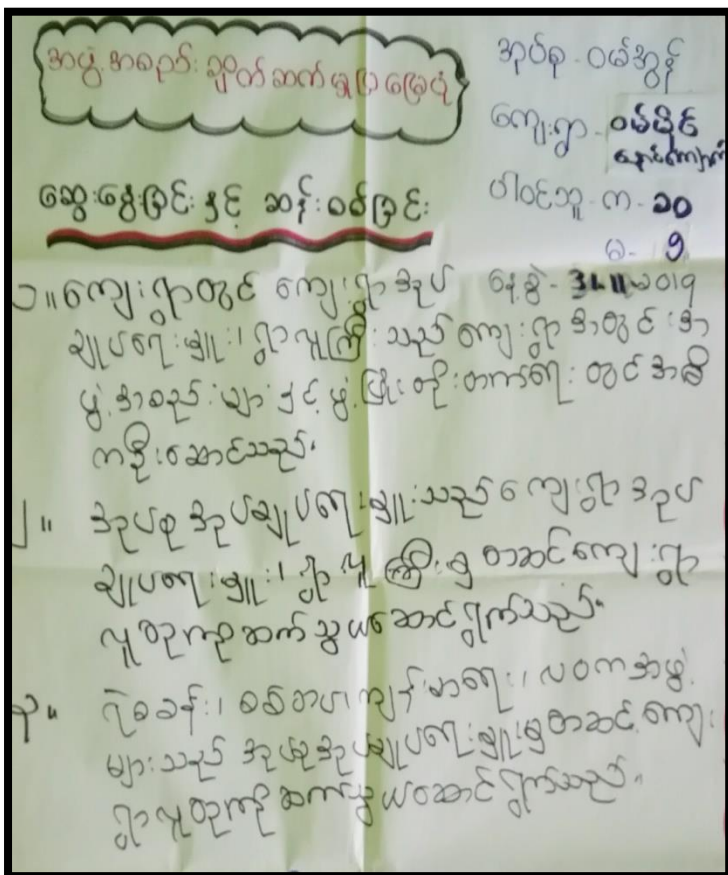 အဖွဲ့အစည်းချိတ်ဆက်မှုပြမြေပုံ
အုပ်စု - ဝမ်အွန်
ကျေးရွာ - ဝမ်ပိုင်
နောင်ကျောက်
ပါဝင်သူ - က - ၁၀
မ - ၅
ဆွေးနွေးခြင်းနှင့် ဆန်းစစ်ခြင်း
၁။ ကျေးရွာတွင် ကျေးရွာအုပ်
နေ့စွဲ - ၂၀၁၅
ချုပ်ရေးမှူး၊ ရွာလူကြီးသည် ကျေးရွာအတွင်းအ
ဖွဲ့အစည်းများနှင့် ဖွံ့ဖြိုးတိုးတက်ရေးတွင် အဓိ
ကဦးဆောင်သည်။
၂။ အုပ်စုအုပ်ချုပ်ရေးမှူးသည် ကျေးရွာအုပ်
ချုပ်ရေးမှူး၊ ရွာလူကြီးမှတဆင့် ကျေးရွာ
လူထုကိုဆက်သွယ်ဆောင်ရွက်သည်။
၃။ ရဲစခန်း၊ စစ်တပ်၊ ကျန်းမာရေး၊ လဝကအဖွဲ့
များသည် အုပ်စုအုပ်ချုပ်ရေးမှူးမှတဆင့် ကျေး
ရွာလူထုကိုဆက်သွယ်ဆောင်ရွက်သည်။